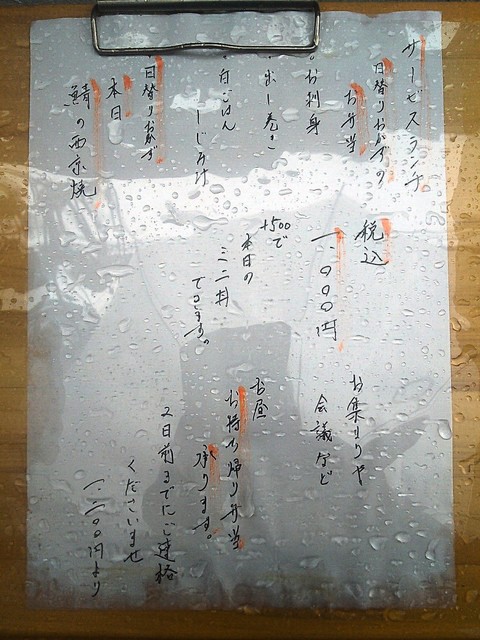 サービスランチ。
日替りおかずの
お弁当
。お刺身
・出し巻き
・白ごはん
しじみ汁
・日替りおかず
本日
鯖の西京焼
税込
一、〇〇〇円。
+500で
本日の
ミニ丼
できます。
お集りや
会議など
お昼
お持ち帰り弁当
承ります。
2日前までにご連絡
くださいませ
一、二〇〇円より